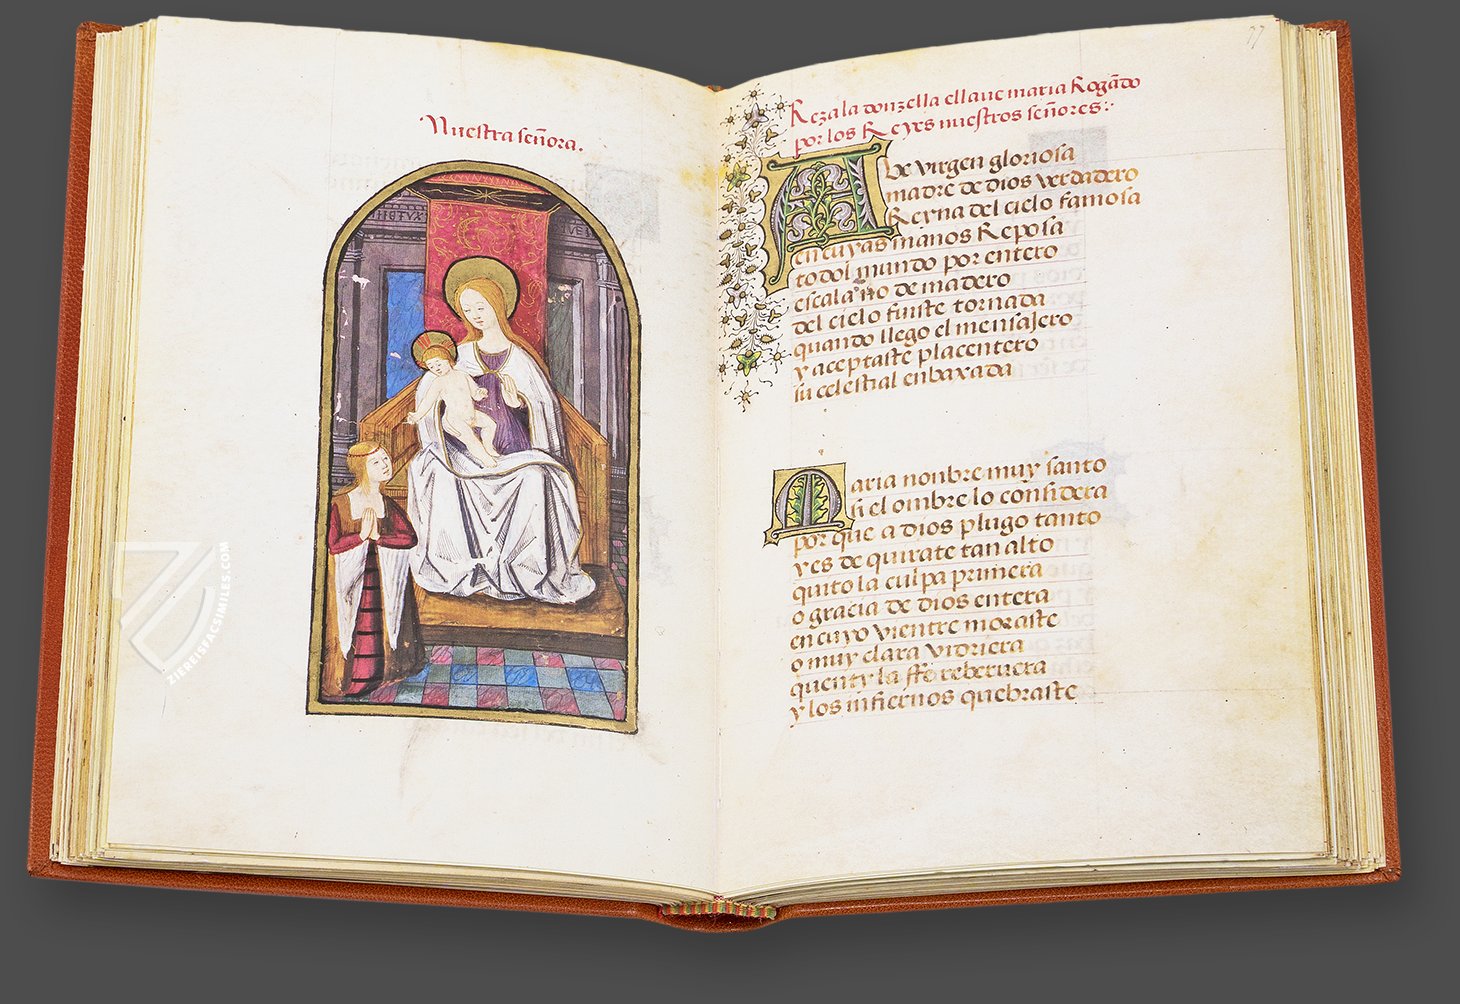 Nuestra señora.
77
Reza la donzella ell aue maria Rogādo
por los Reyes nuestros señores:·
AVe virgen gloriosa
madre de dios verdadero
Reyna del cielo famosa
en cuyas manos Reposa
todol mundo por entero
escala no de madero
del cielo fuiste tornada
quando llego el mensajero
y aceptaste placentero
su celestial enbaxada
Maria nonbre muy santo
si el onbre lo considera
por que a dios plugo tanto
yes de quirate tan alto
quito la culpa primera
o gracia de dios entera
en cuyo vientre moraste
o muy clara vidriera
quenty la ffe
y los infiernos quebraste
ZIEREISFACSIMILES.COM